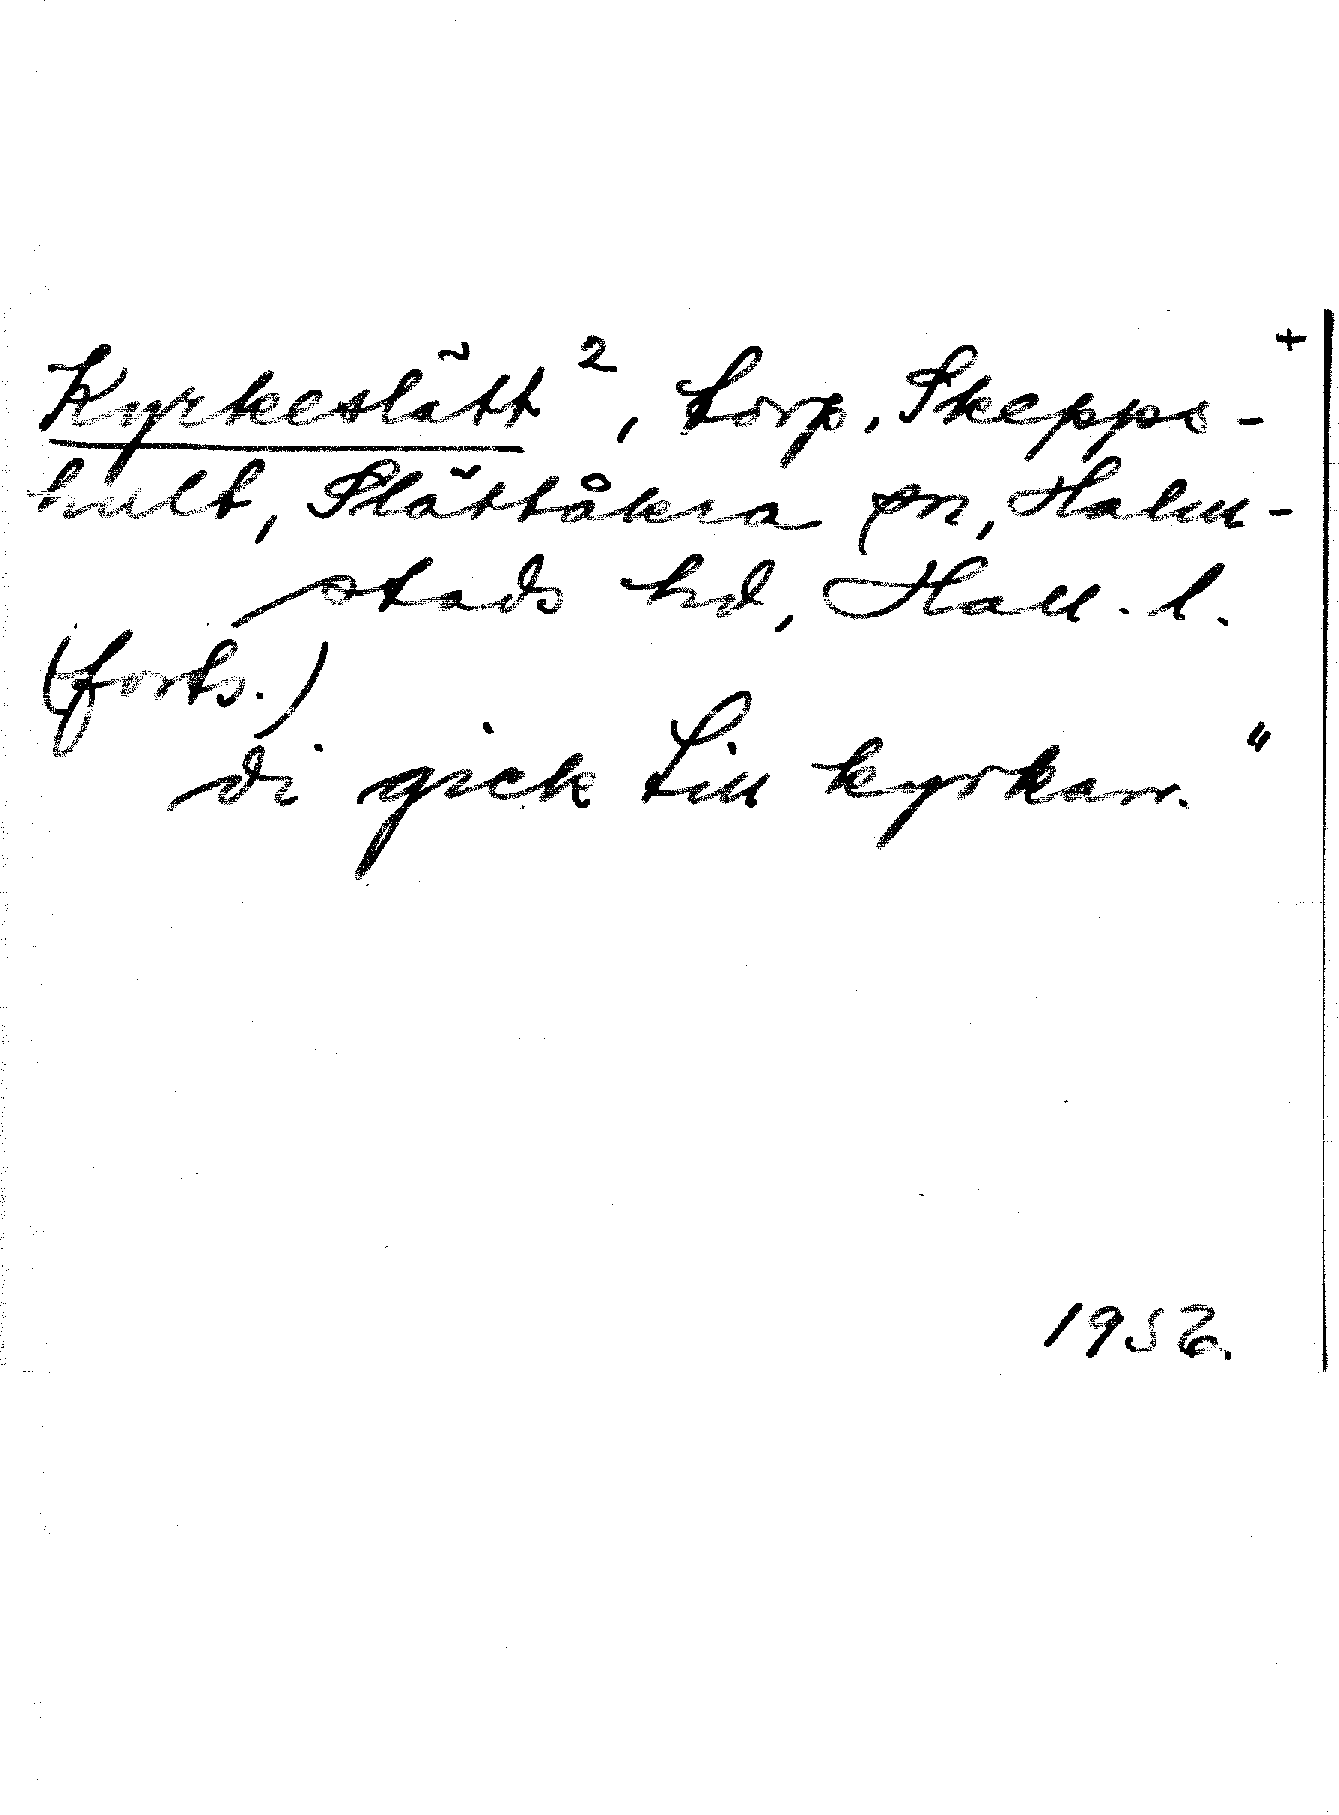 Kyrkeslätt ², torp, Skepps- +
hult, Slättåkra sn, Halm-
stads hd, Hall. l.
(forts.)
di gick till kyrkan."
1952.